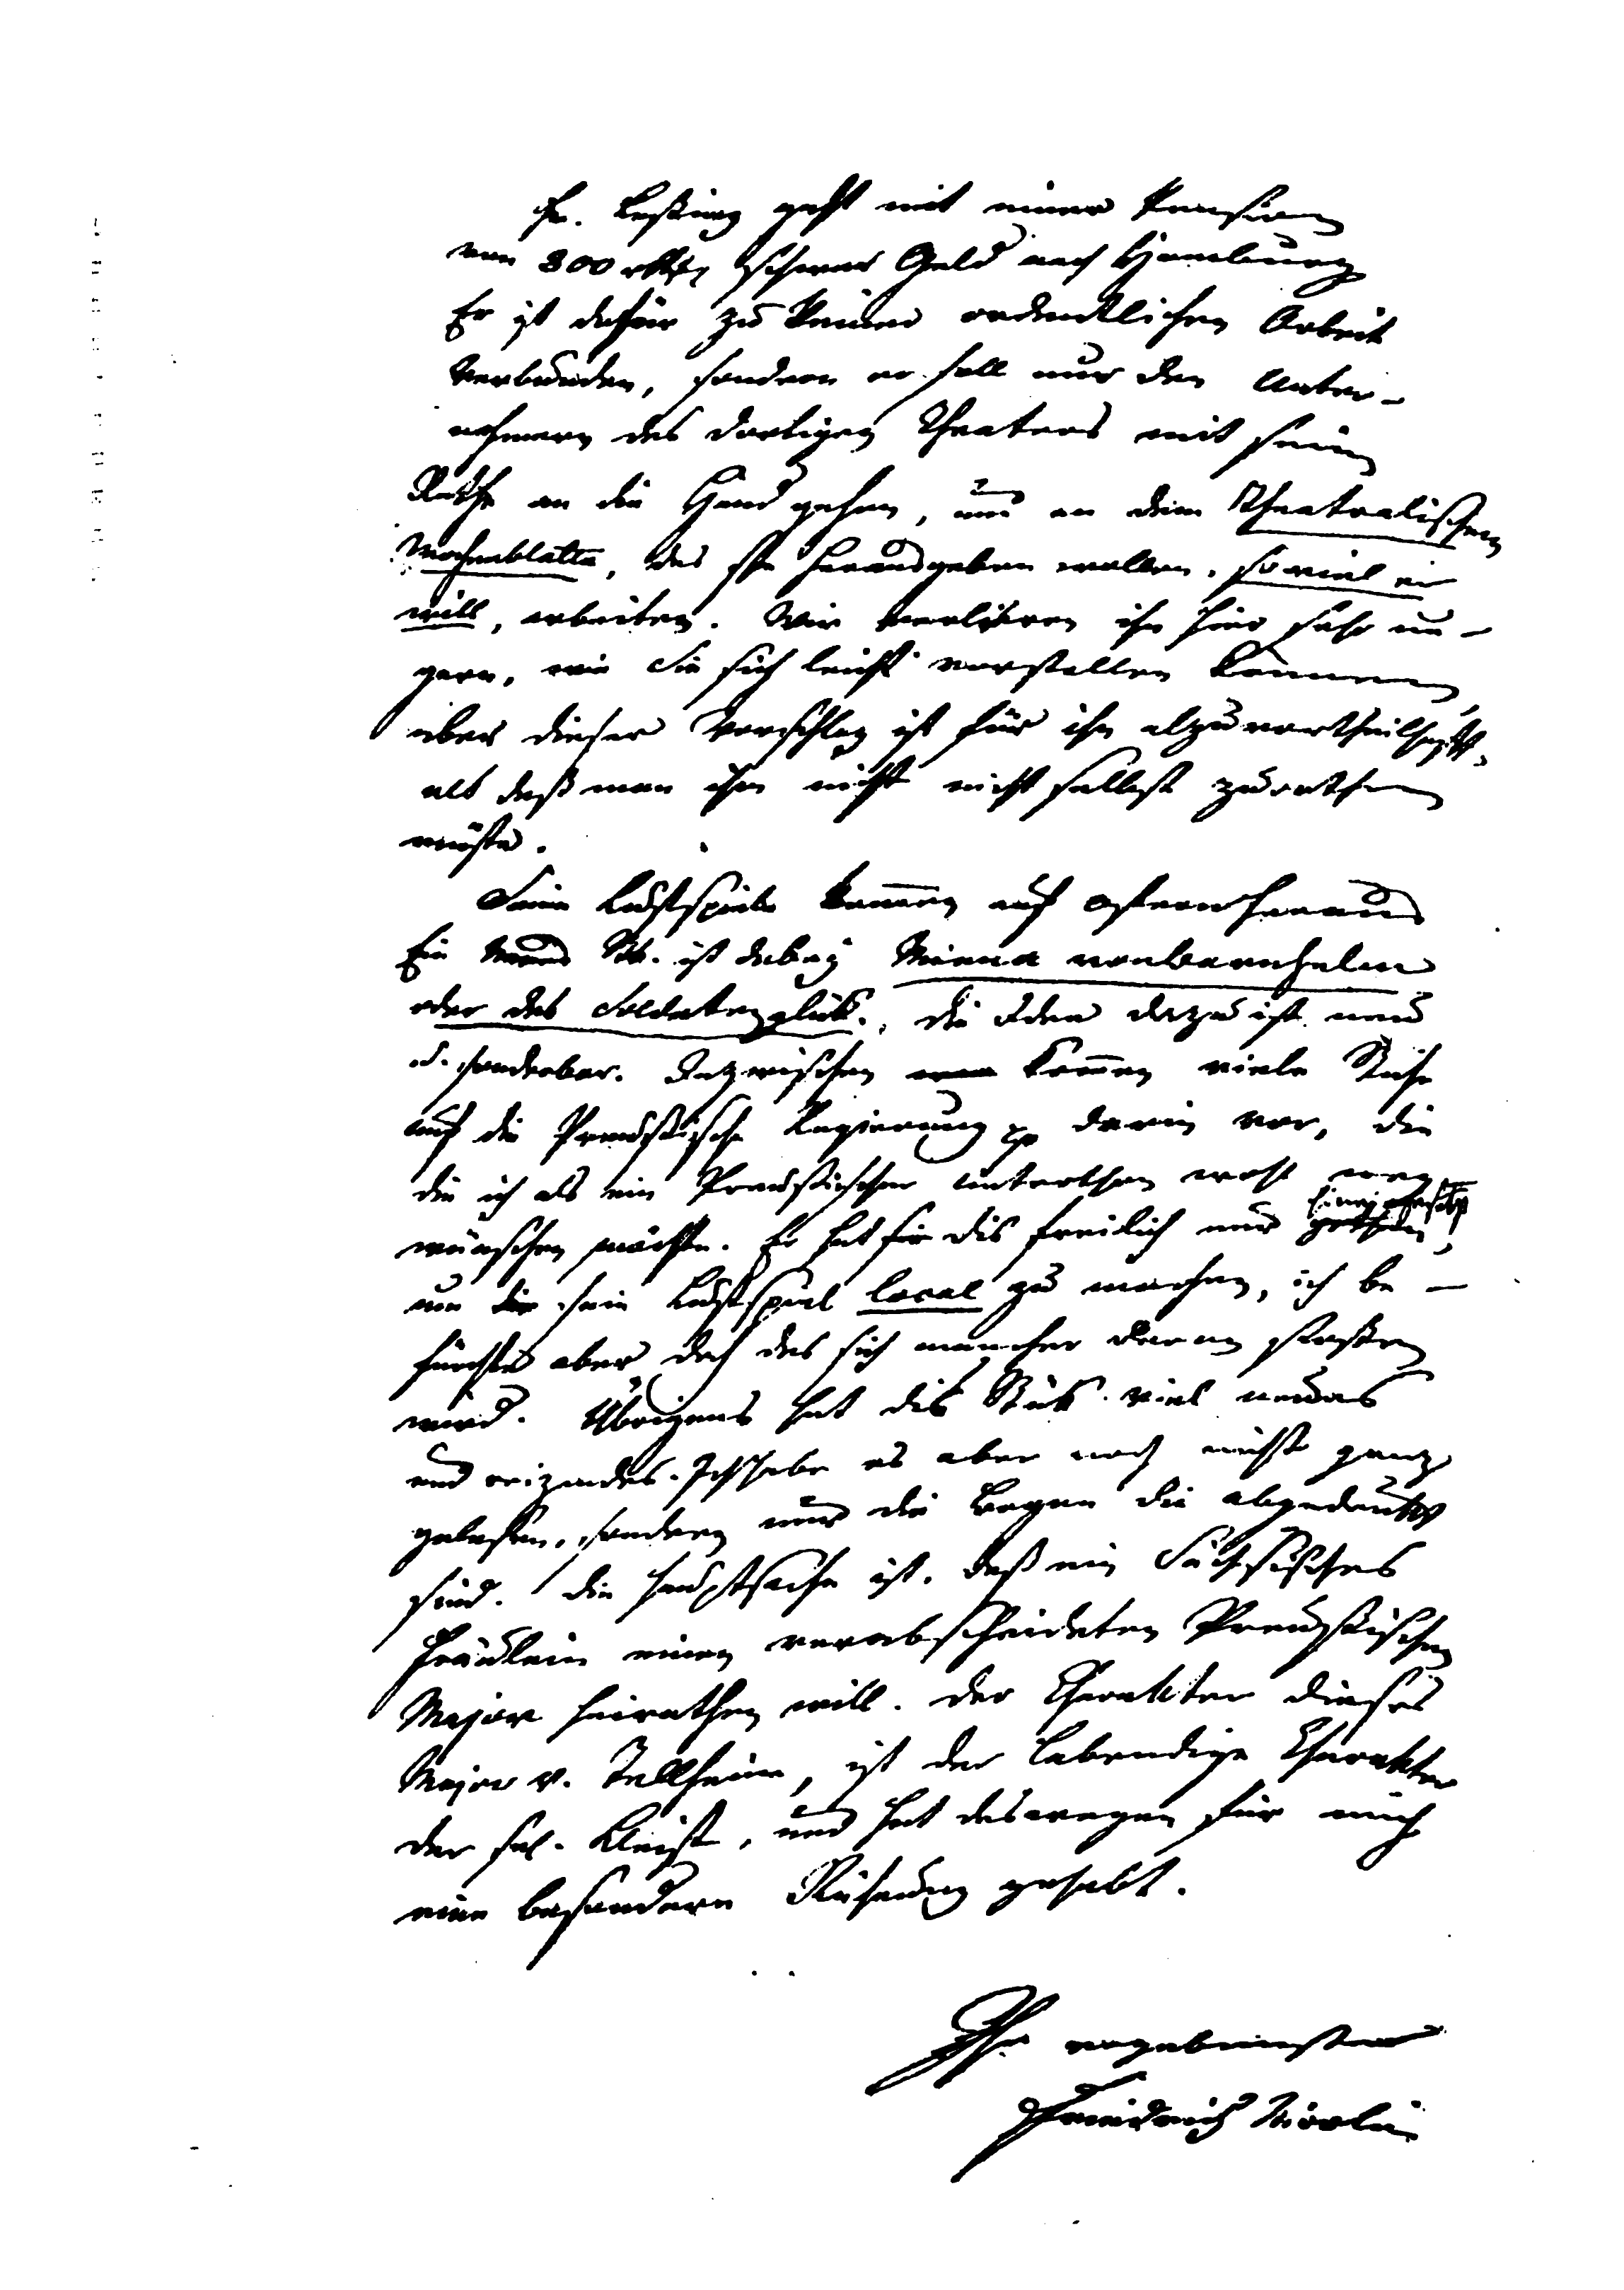 Hr. Leßing geht mit einer Pension
von 800 rthlr schwer Geld nach Hamburg
Er ist dafür zu keiner ordentlichen Arbeit
verbunden, sondern er soll nur den Unter-
nehmern des dortigen Theaters mit sein
Rathe an die Hand gehen, und an dem Theatralischen
Wochenblatte, das sie herausgeben wollen, so viel er
will, arbeiten. Wir verlieren ihn hier sehr un-
gern, wie Sie sich leicht vorstellen können,
aber dieser Vorschlag ist für ihn alzuvortheilhafft,
als daß man ihm nicht nicht selbst zurathen
müste.
Seine Lustspiele kommen auf Ostern heraus
Ein Neues St. ist dabey Minna von Barnhelm
oder das Soldatenglük., die Idee dazu ist neu
u. sonderbar. Inzwischen kommen viele Stiche
auf die Preußische Regierung pp darin vor, die
die ich als ein Preußischer Unterthan wohl weg
wünschen möchte. Er hat sie dis freilich nur hineingesetzt
gethan,
um die sein Lustspiel local zu machen, ich be-
fürchte aber doch das sich mancher daran stoßen
wird. Übrigens hat dis Stük viel neues
und reizendes. Ich habe es aber noch nicht ganz
gelesen, sondern nur die Bogen die abgedrukt
sind. Die Hauptsache ist, daß ein Sächsisches
Fräulein einen verabscheideten Preußischen
Major heirathen will. Der Charakter dieses
Major v. Tellheim, ist der lebendige Charakter
der sel. Kleist, und hat deswegen für mich
eine besondere Rührung gehabt.
Ihr ergebenster
Friedrich Nicolai